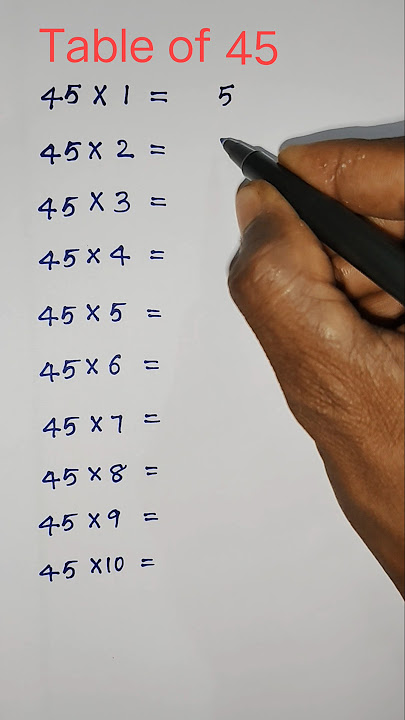 Table of 45
45 X 1 = 5
45 X 2 =
45 X 3 =
45 X 4 =
45 X 5 =
45 X 6 =
45 X 7 =
45 X 8 =
45 X 9 =
45 X 10 =